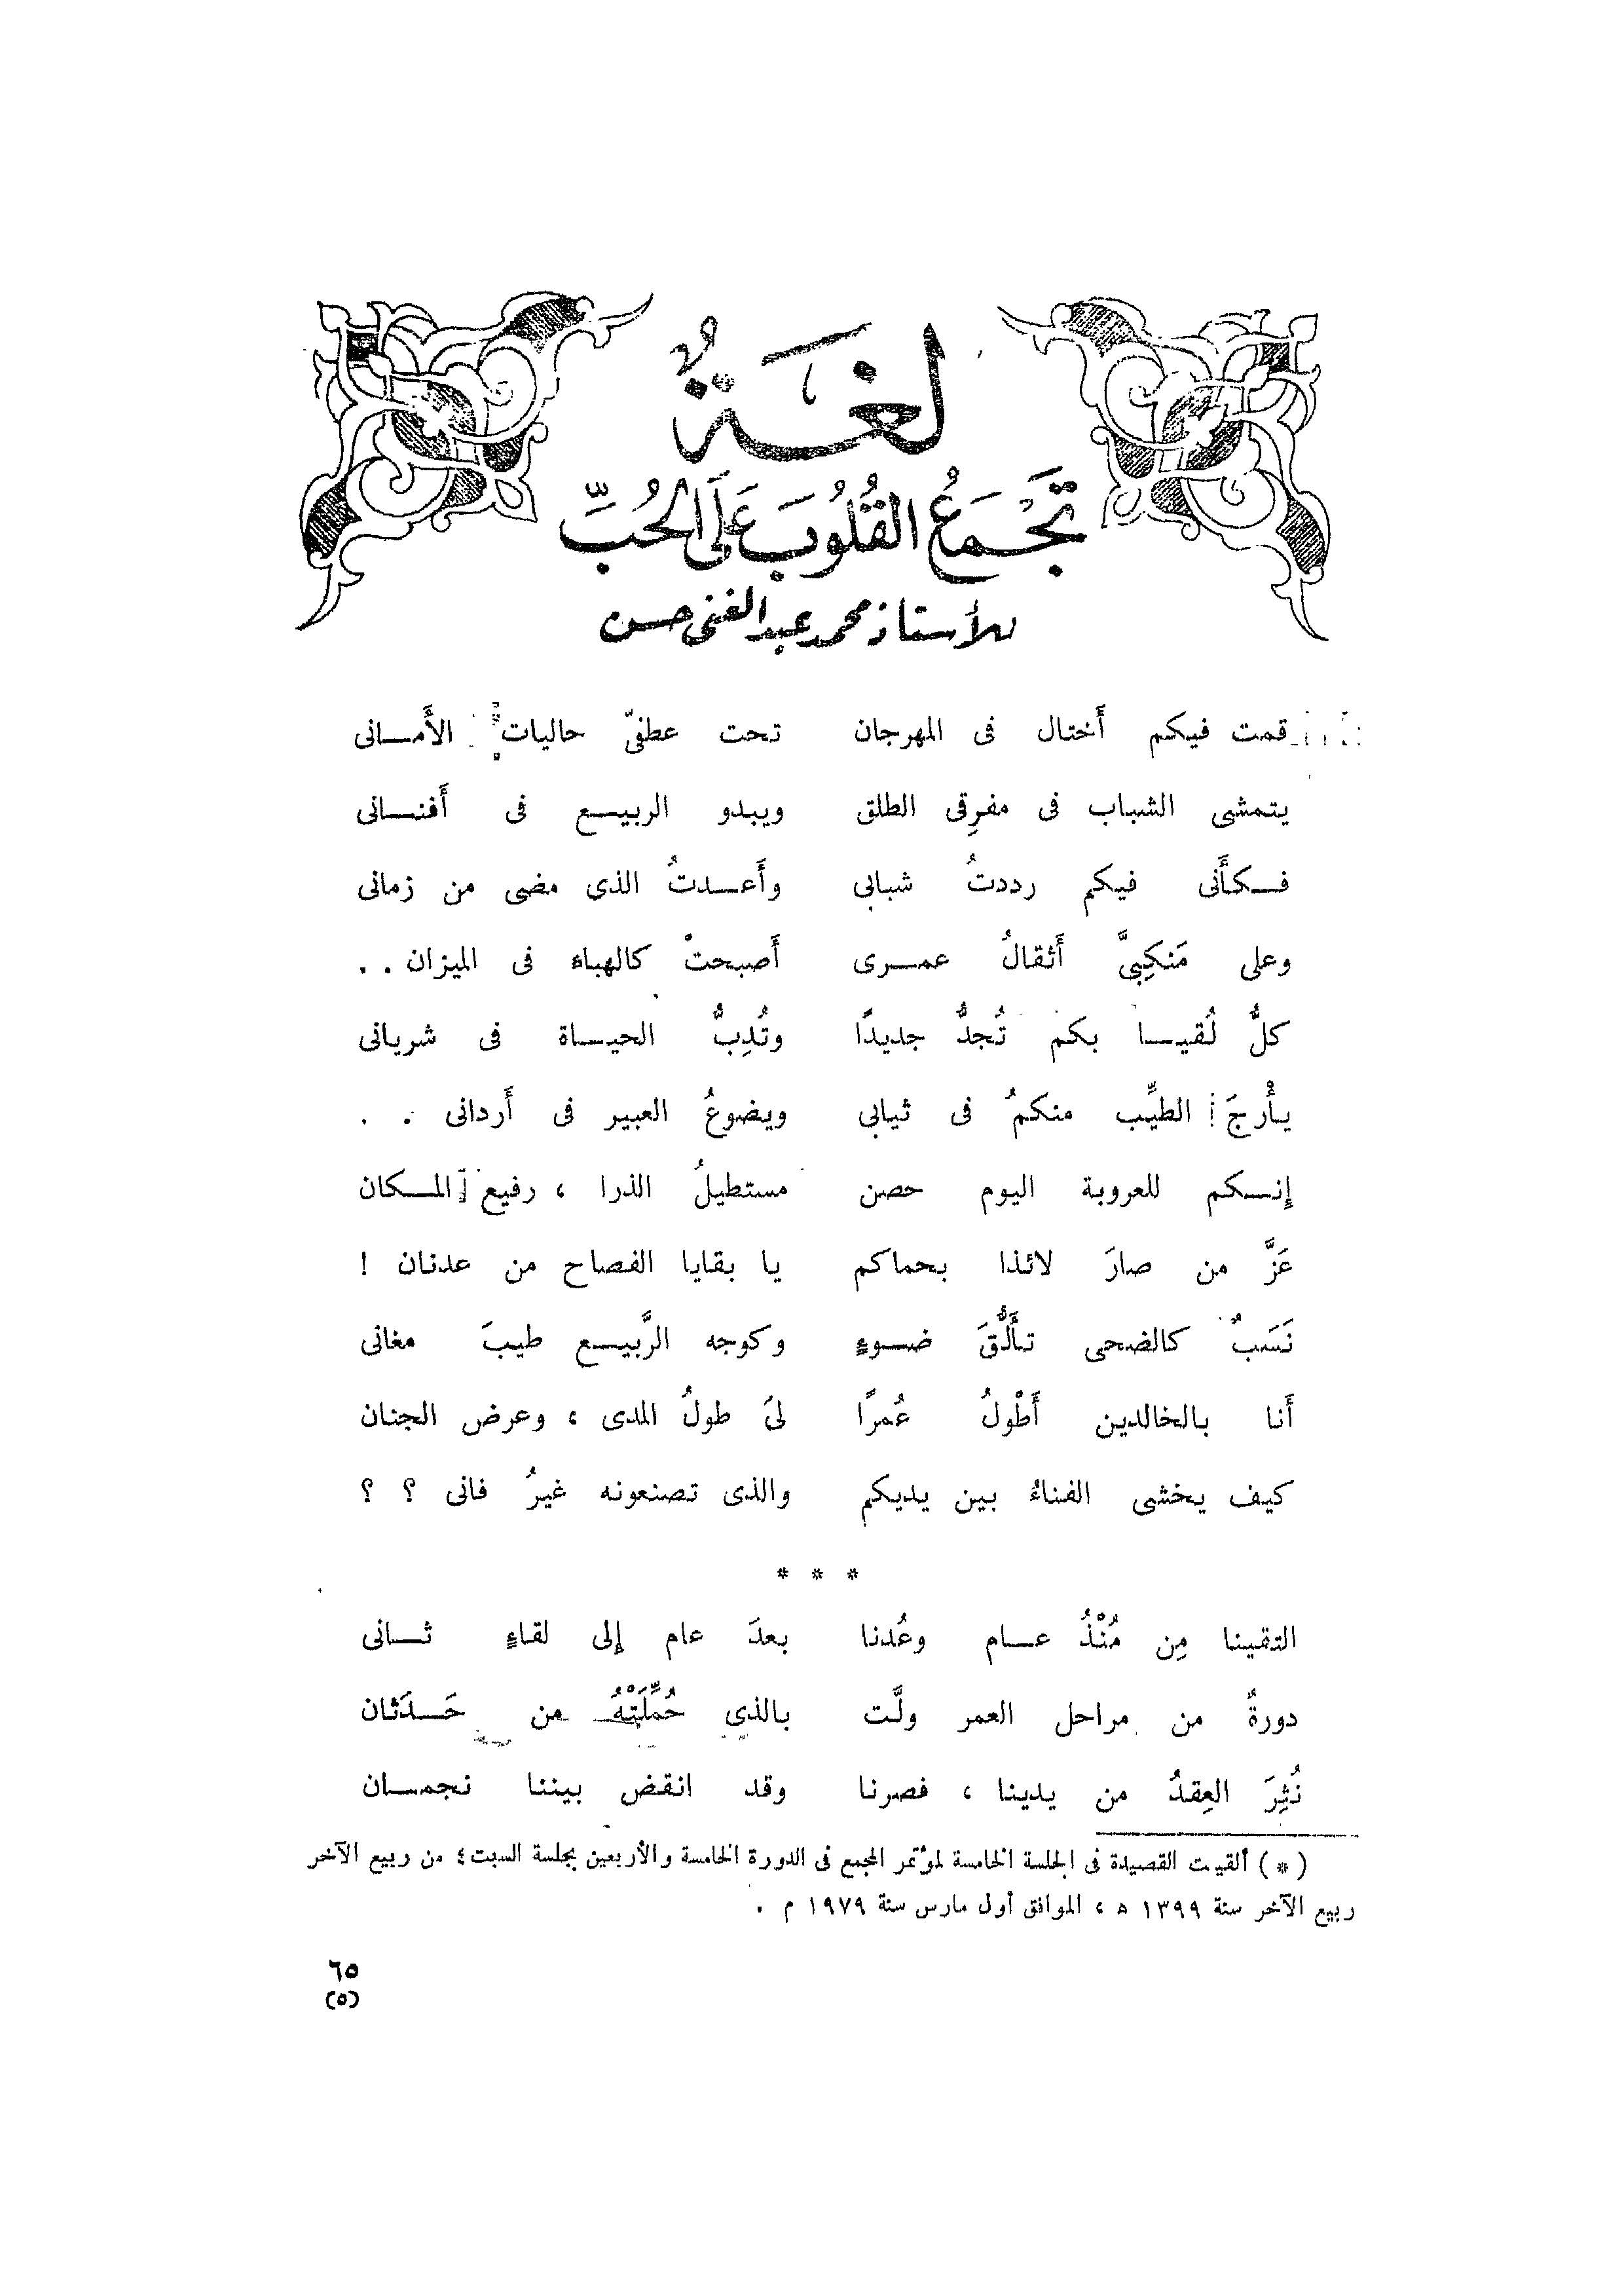 لغةٌ
تجمعُ القُلُوبَ عَلَى الحُبِّ
للأستاذ محمد عبد الغنى حسن
قمت فيكم أَختال فى المهرجان تحت عطفىّ حاليات الأَمـانى
يتمشى الشباب فى مفرِقى الطلق ويبدو الربيـع فى أَفنـانى
فـكأَنى فيكم رددتُ شبابى وأَعـدتُ الذى مضى من زمانى
وعلى مَنكِبىَّ أَثقالُ عمـرى أَصبحتْ كالهباء فى الميزان . .
كلُّ لُقيـا بكم تُجدُّ جديدًا وتُدِبُّ الحيـاة فى شريانى
يـأْرجَ الطيِّب منكمُ فى ثيابى ويضوعُ العبير فى أَردانى . .
إنـكم للعروبة اليوم حصن مستطيلُ الذرا ، رفيع المـكان
عَزَّ من صارَ لائذا بحماكم يا بقايا الفصاح من عدنان !
نَسَبٌ كالضحى تأَلُّقَ ضـوءٍ وكوجه الرَّبيـع طيبَ مغانى
أَنا بالخالدين أَطْولُ عُمرًا لىَ طولُ المدى ، وعرض الجنان
كيف يخشى الفناءُ بين يديكم والذى تصنعونه غيرُ فانى ؟ ؟
* * *
التقينا مِن مُنْذُ عـام وعُدنا بعدَ عام إلى لقاءٍ ثـانى
دورةٌ من مراحل العمر ولَّت بالذى حُمِّلَتْهُ من حَـدَثان
نُثِرَ العِقدُ من يدينا ، فصرنا وقد انقض بيننا نجمـان
( * ) ألقيت القصيدة فى الجلسة الخامسة لمؤتمر المجمع فى الدورة الخامسة والأربعين بجلسة السبت ٤ من ربيع الآخر
ربيع الآخر سنة ١٣٩٩ ه ، الموافق أول مارس سنة ١٩٧٩ م .
٦٥
(٥)